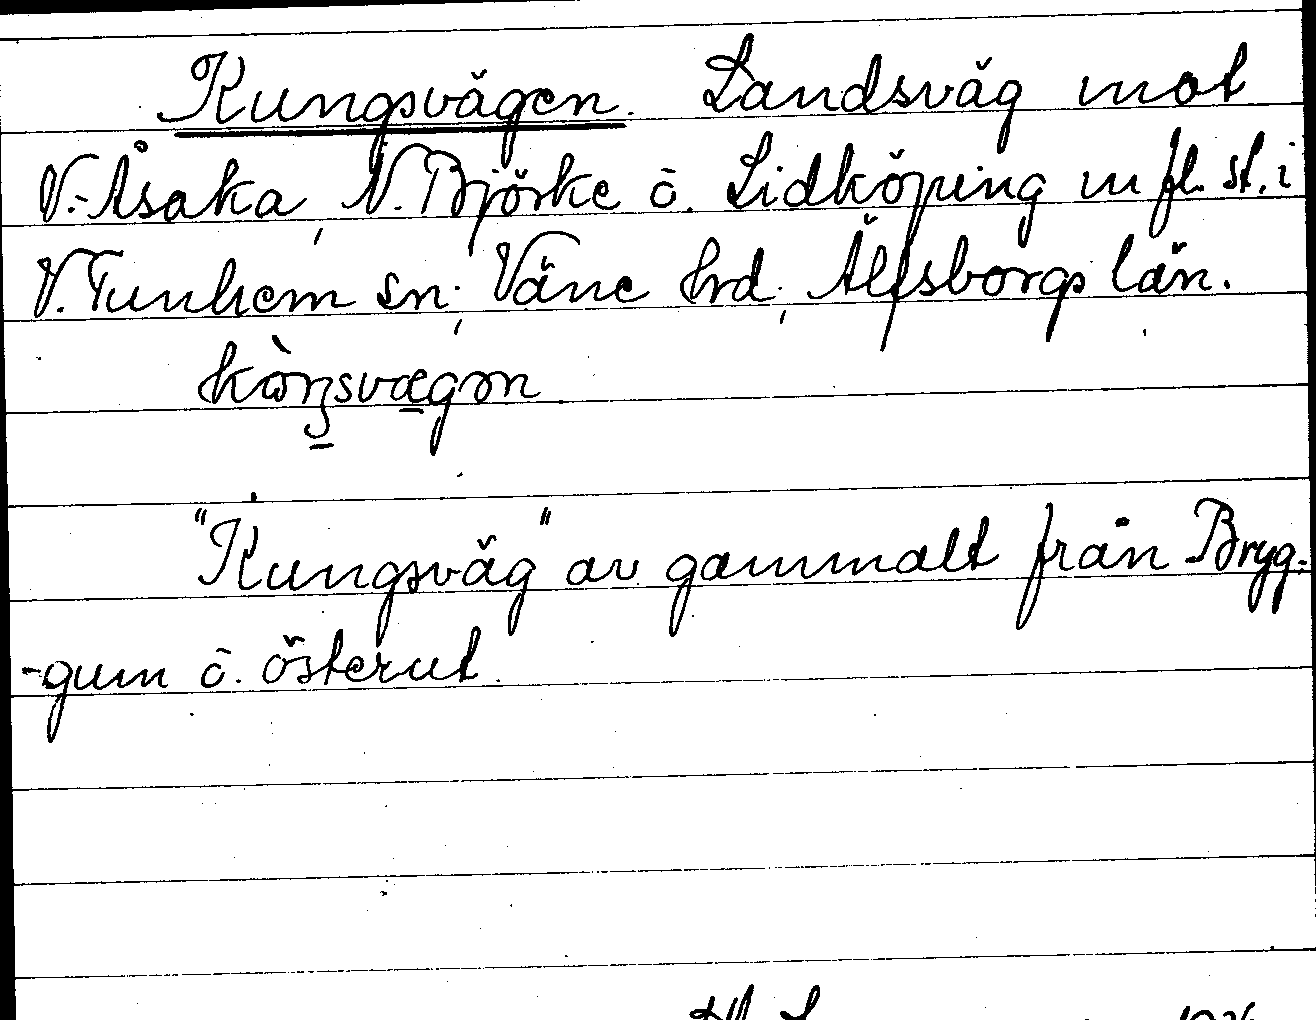 Kungsvägen. Landsväg mot
V. Åsaka, N. Björke o. Lidköping m fl. st. i
V. Tunhem sn; Väne hrd, Älfsborgs län.
"Kungsväg" av gammalt från Bryg-
-gum o. österut.